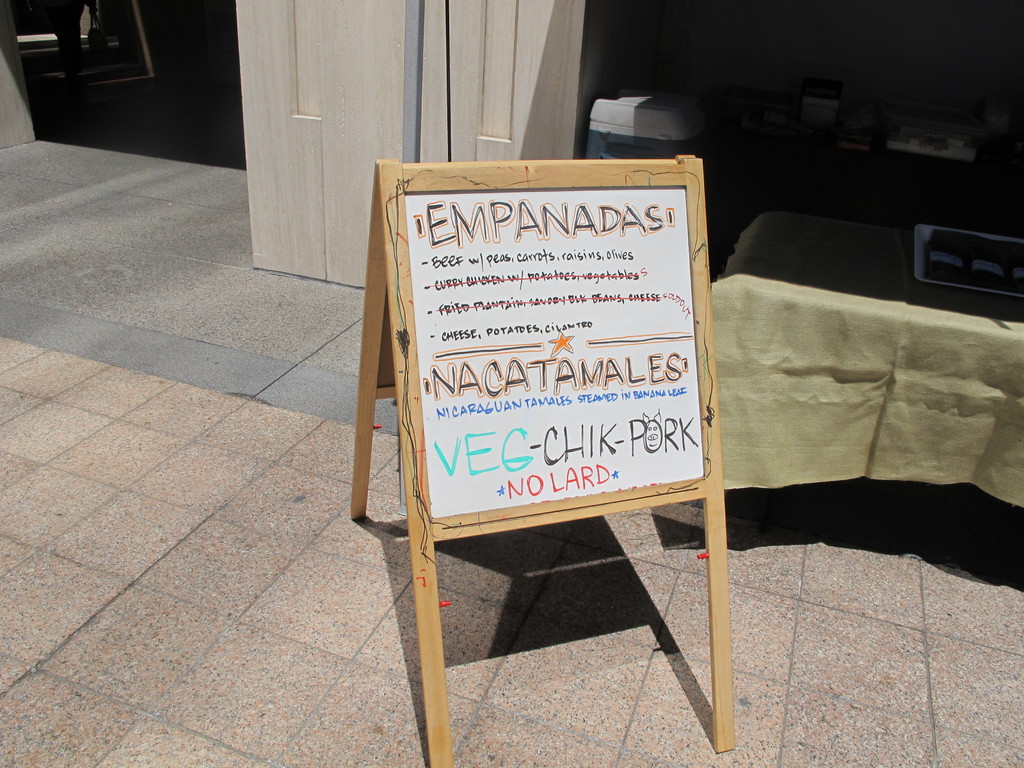 EMPANADAS
- BEEF w/ peas, carrots, raisins, olives
- CURRY CHICKEN w/ potatoes, vegetables
- FRIED PLANTAIN, SAVORY BLK BEANS, CHEESE SOLD OUT
- CHEESE, POTATOES, CILANTRO
NACATAMALES
NICARAGUAN TAMALES STEAMED IN BANANA LEAF
VEG-CHIK-PORK
*NO LARD*